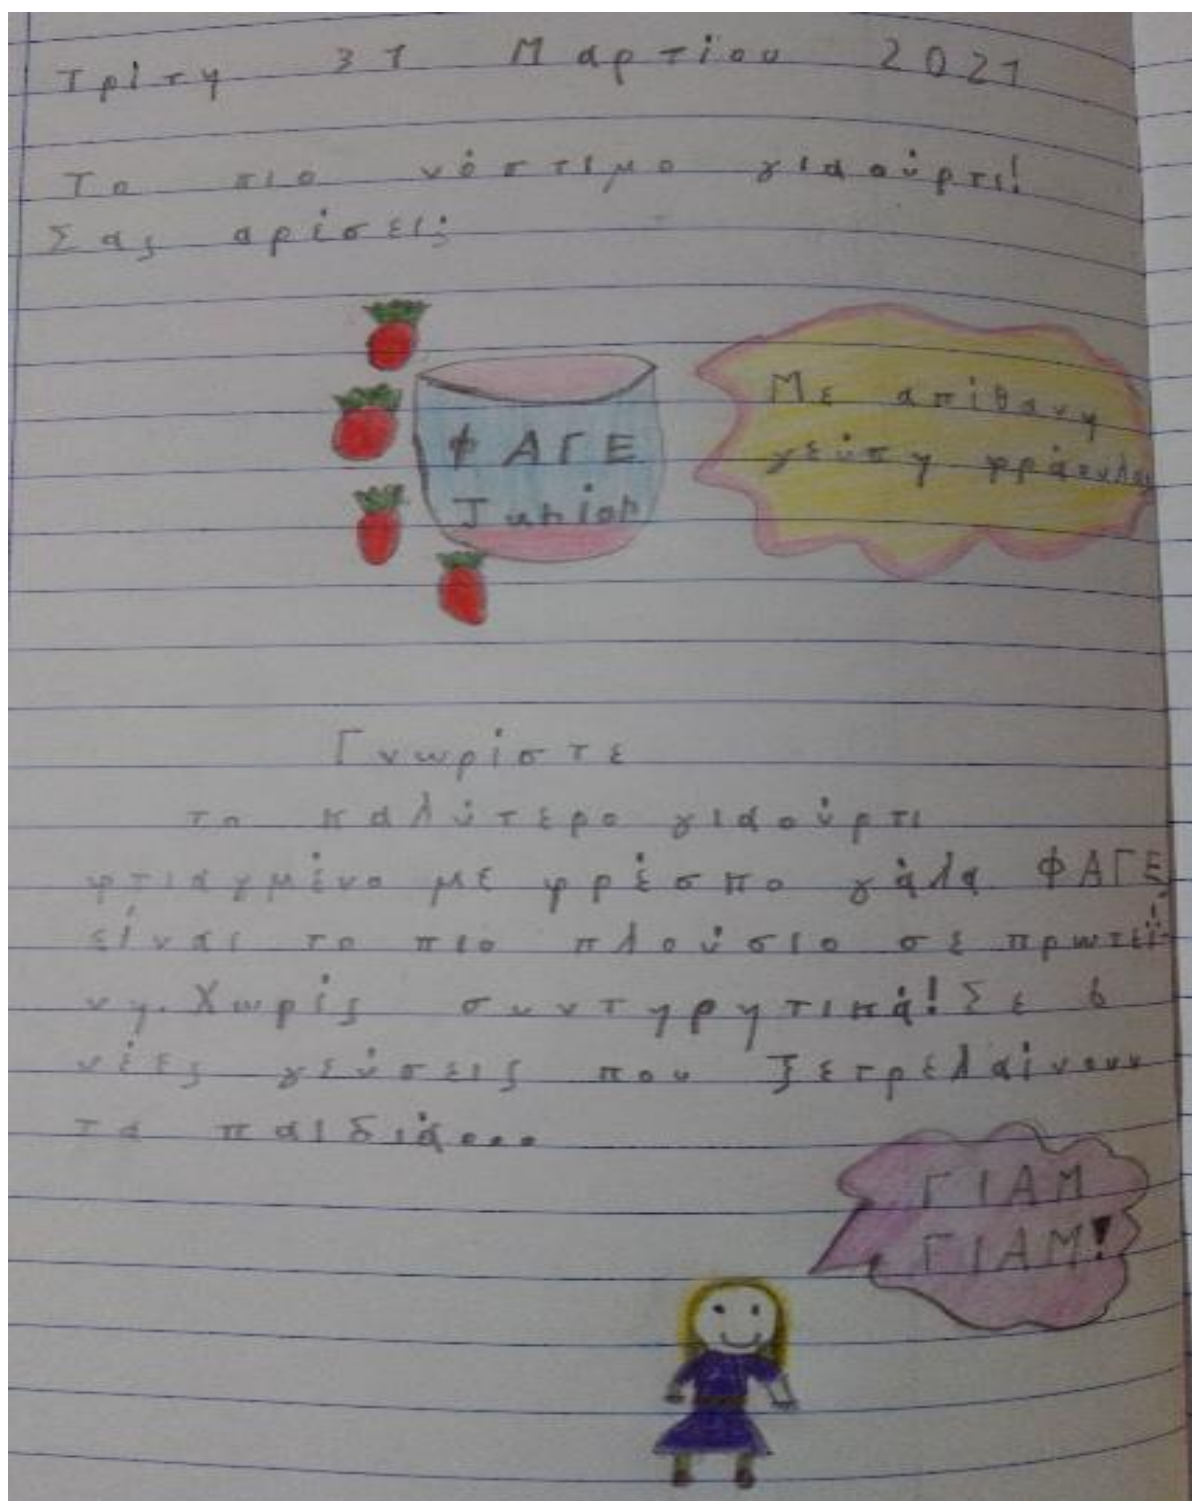 Τρίτη 31 Μαρτίου 2021
Το πιο νόστιμο γιαούρτι!
Σας αρίσει;
ΦΑΓΕ
Junior
Με απίθανη
γεύση φράουλα
Γνωρίστε
το καλύτερο γιαούρτι
φτιαγμένο με φρέσκο γάλα ΦΑΓΕ,
είναι το πιο πλούσιο σε πρωτεΐ-
νη. Χωρίς συντηρητικά! Σε 6
νέες γεύσεις που ξετρελαίνουν
τα παιδιά...
ΓΙΑΜ
ΓΙΑΜ!